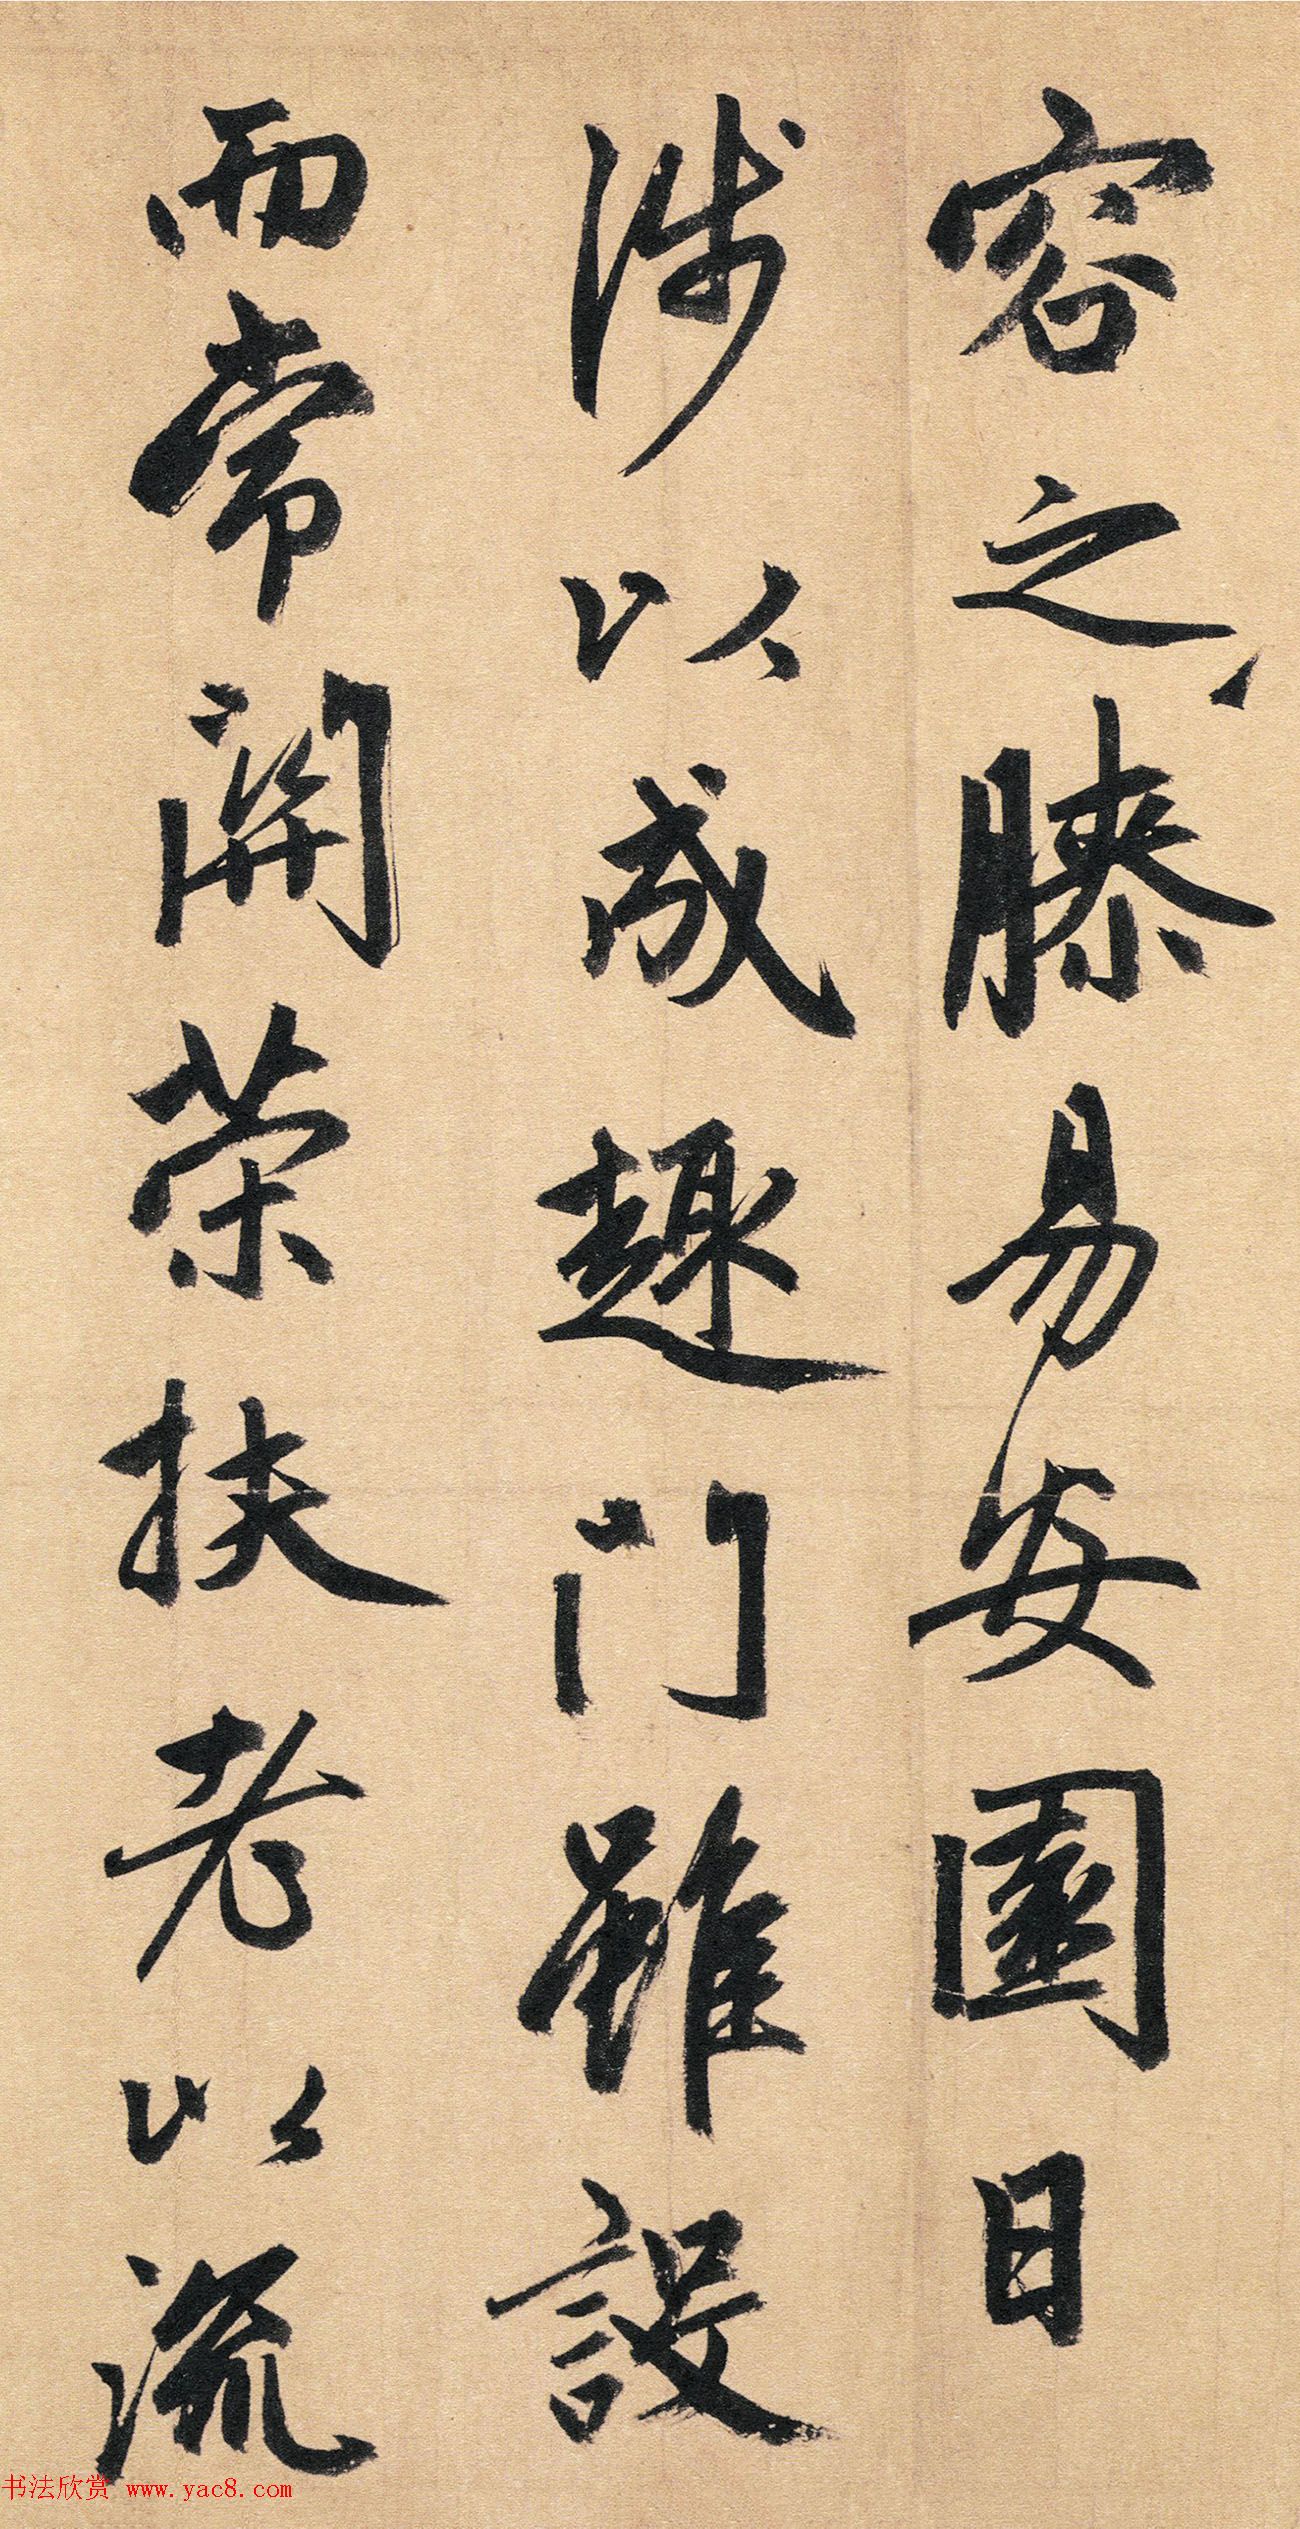 容之膝易安園日
涉以成趣門雖設
而常関策扶老以流
书法欣赏 www.yac8.com